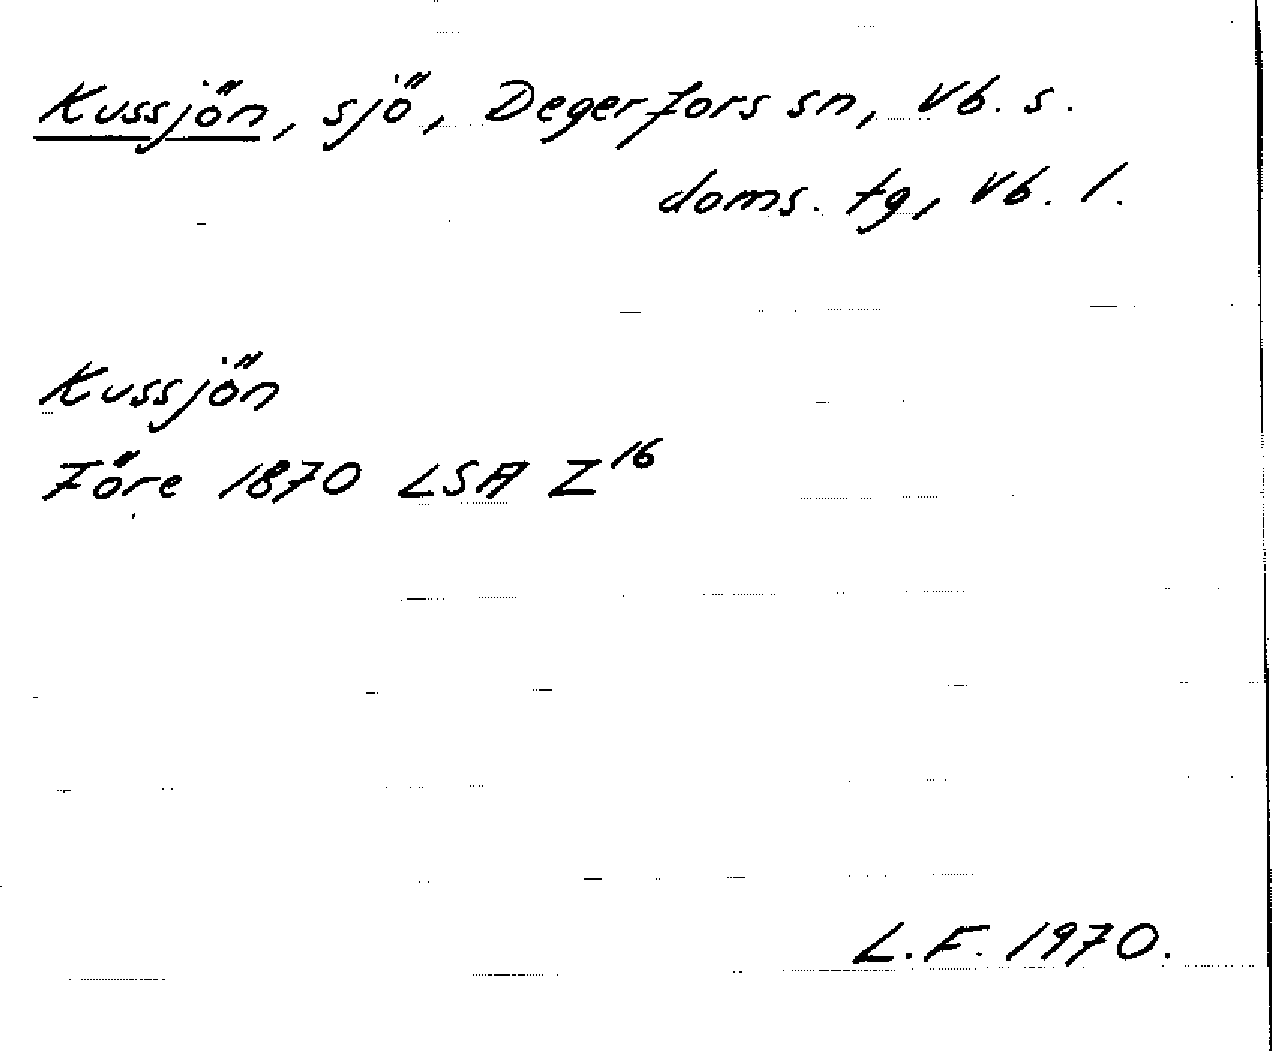 Kussjön, sjö, Degerfors sn, Vb. s.
doms. tg, Vb. l.
Kussjön
Före 1870 LSA Z¹⁶
L.F. 1970.